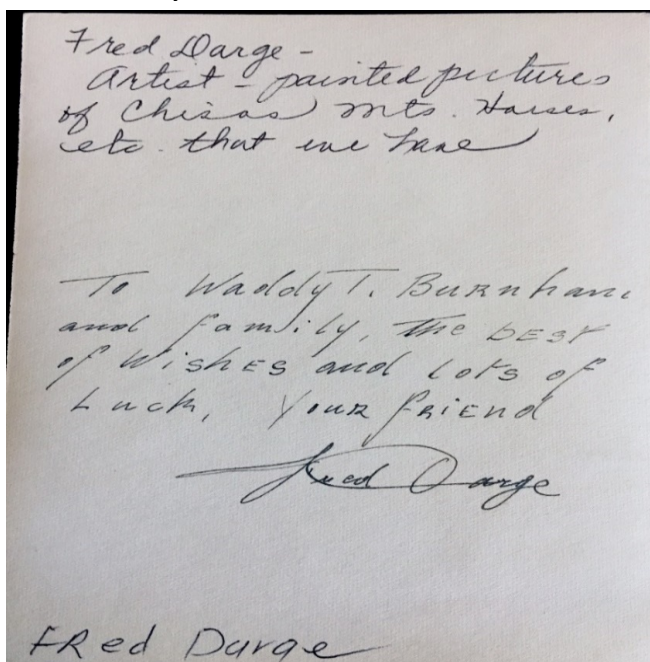 Fred Darge -
Artist - painted pictures
of Chisos Mts. Horses,
etc. that we have
To Waddy T. Burnham
and family, the best
of wishes and lots of
Luck, Your friend
Fred Darge
FRed Darge